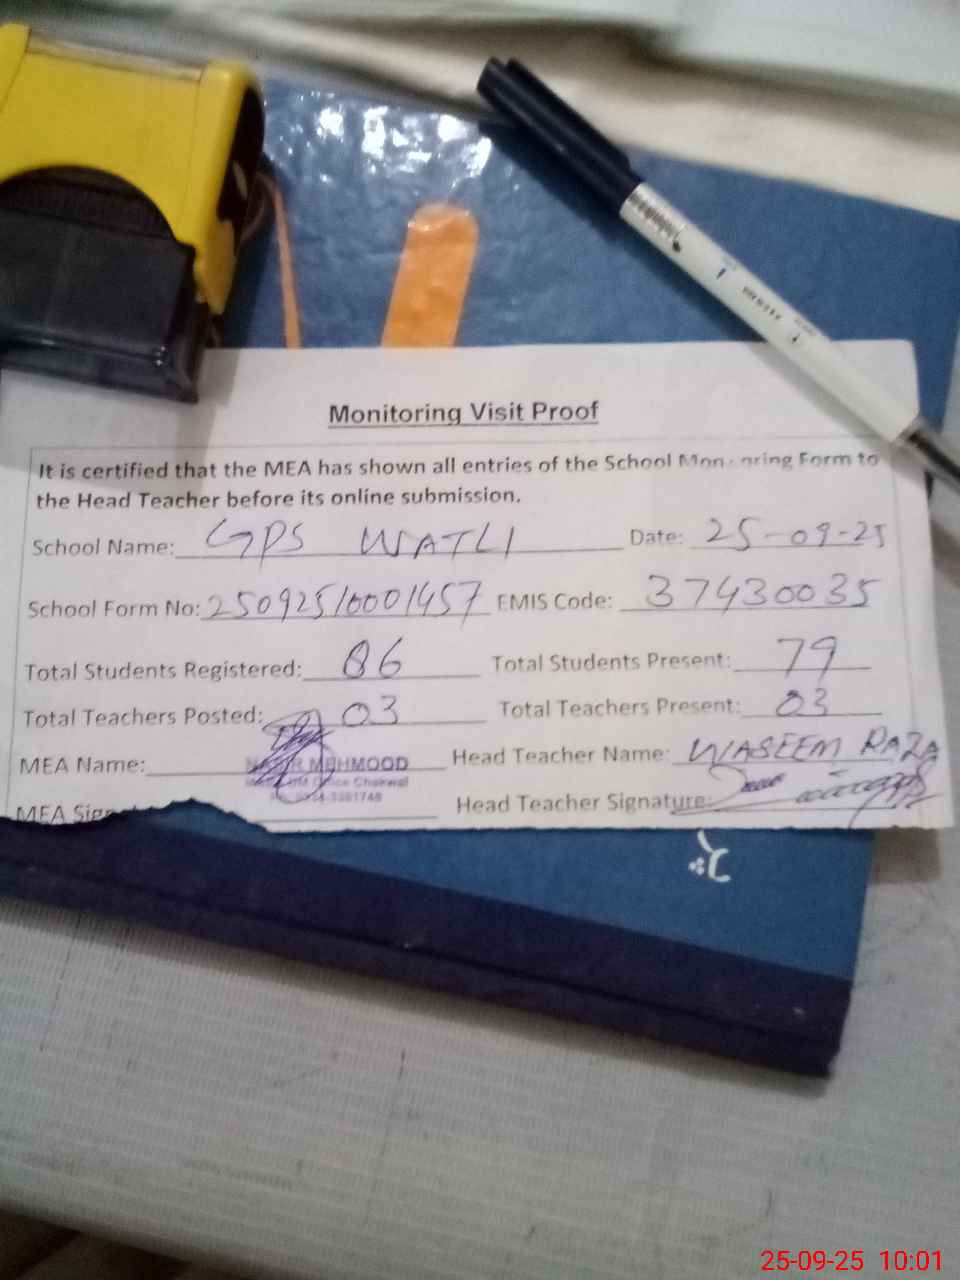 Monitoring Visit Proof
It is certified that the MEA has shown all entries of the School Monitoring Form to
the Head Teacher before its online submission.
School Name: GPS WATLI Date: 25-09-25
School Form No: 25092510001457 EMIS Code: 37430035
Total Students Registered: 86 Total Students Present: 79
Total Teachers Posted: 03 Total Teachers Present: 03
MEA Name: MEHMOOD Head Teacher Name: WASEEM RAZA
Office Chakwal
MEA Head Teacher Signature:
25-09-25 10:01